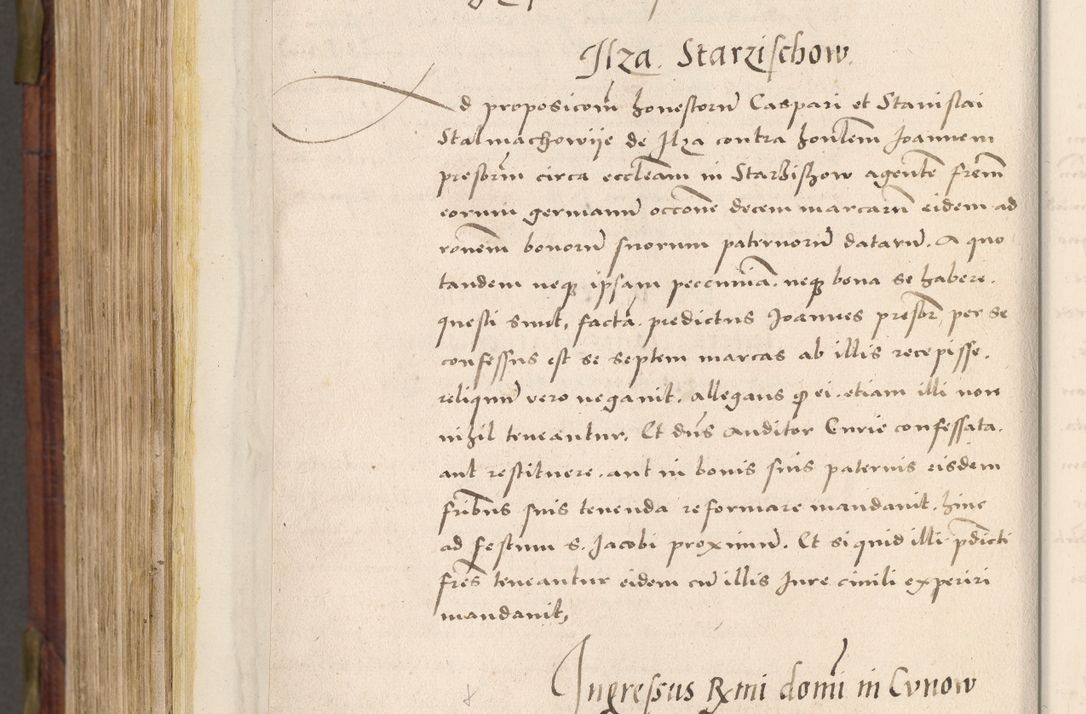 Ilza. Starzischow.
Ad proposicōm honestorū Caspari et Stanislai
Stalmachowije de Ilza contra honlem Joannem
presbrm circa eccleam in Starzishow agente frem
eorum germanū occone decem marcarū eidem ad
ronem bonorū suorum paternorū datarū. A quo
tandem neqꝫ ipsam peccunia. neqꝫ bona se habere.
questi sunt, facta. predictus Joannes presbr per se
confessus est se septem marcas ab illis recepisse.
reliquū vero negauit. allegans ꝙ ei. etiam illi non
nihil teneantur. Et dns Auditor Curie confessata.
aut restituere. aut in bonis suis paternis eisdem
fribus suis tenenda reformare mandauit. hinc
ad festum s. Jacobi proximū. Et si quid illi pdicti
fres teneantur eidem cū illis Jure ciuili experiri
mandauit,
Ingressus Rxmi domi in Cunow